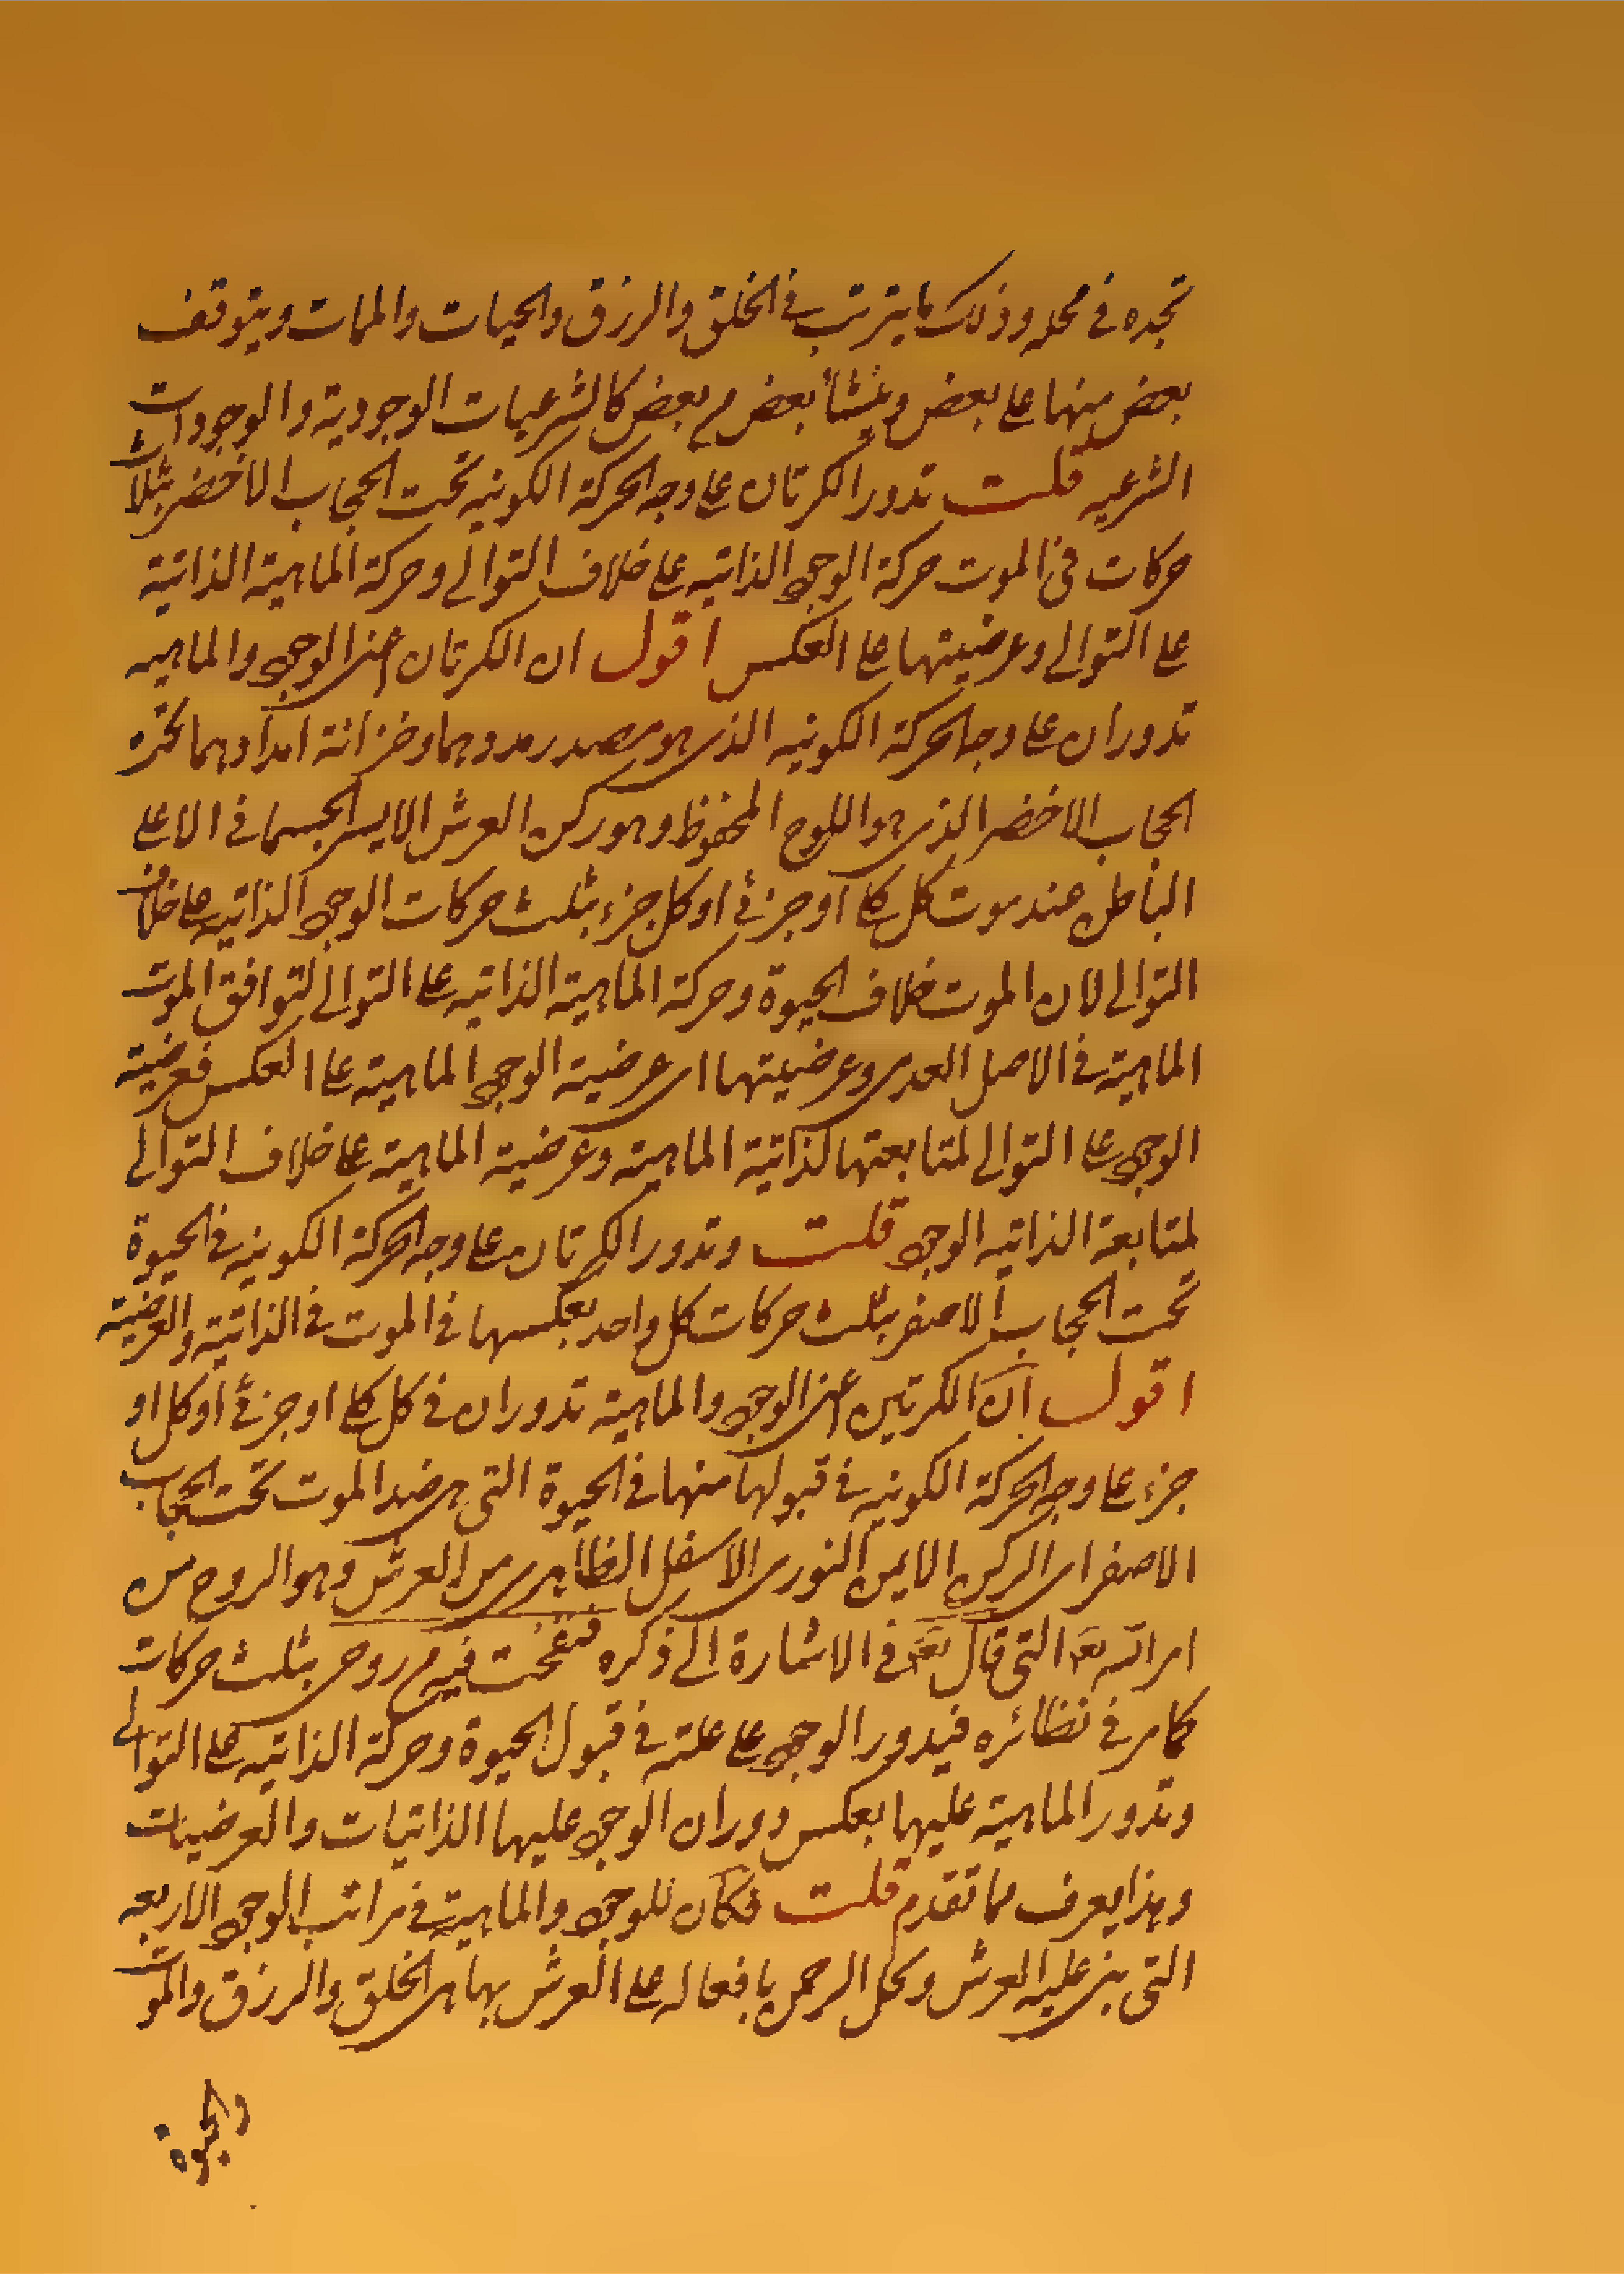 تجده فى محله وذلك كما يترتب فى الخلق والرزق والحيات والممات ويتوقف
بعض منها على بعض وينشأ بعض من بعض كالشرعيات الوجودية والوجودات
الشرعيه قلت تدور الكرتان على وجه الحركة الكونيه تحت الحجاب الاخضر بثلاث
حركات فى الموت حركة الوجود الذاتيه على خلاف التوالى وحركة الماهية الذاتية
على التوالى وعرضيتهما على العكس اقول ان الكرتان اعنى الوجود والماهيه
تدوران على وجه الحركة الكونيه الذى هو مصدر مددهما وخزانة امدادهما تحت
الحجاب الاخضر الذى هو اللوح المحفوظ وهو ركن العرش الايسر الجسمانى الاعلى
الباطن عند موت كل كلى او جزئى او كل جزء بثلث حركات الوجود الذاتيه على خلاف
التوالى لان الموت خلاف الحيوة وحركة الماهية الذاتيه على التوالى لتوافق الموت
الماهية فى الاصل العدمى وعرضيتهما اى عرضية الوجود الماهية على العكس فعرضية
الوجود على التوالى لمتابعتها لذاتية الماهية وعرضية الماهية على خلاف التوالى
لمتابعة الذاتيه الوجود قلت وتدور الكرتان على وجه الحركة الكونيه فى الحيوة
تحت الحجاب الاصفر بثلث حركات كل واحد بعكسها فى الموت فى الذاتية والعرضية
اقول ان الكرتين اعنى الوجود والماهية تدوران فى كل كلى او جزئى او كل او
جزء على وجه الحركة الكونيه فى قبولها منها فى الحيوة التى هى ضد الموت تحت الحجاب
الاصفر اى الركن الايمن النورى الاسفل الظاهرى من العرش وهو الروح من
امر الله تع التى قال تع فى الاشارة الى ذكره فنفخت فيه من روحى بثلث حركات
كما مر فى نظائره فيدور الوجود على علته فى قبول الحيوة وحركة الذاتيه على التوالى
وتدور الماهية عليها بعكس دوران الوجود عليها الذاتيات والعرضيات
وهذا يعرف مما تقدم قلت فكان للوجود والماهية فى مراتب الوجود الاربعه
التى بنى عليه العرش وتجلى الرحمن بافعاله على العرش بها هى الخلق والرزق والموت
والحيوة